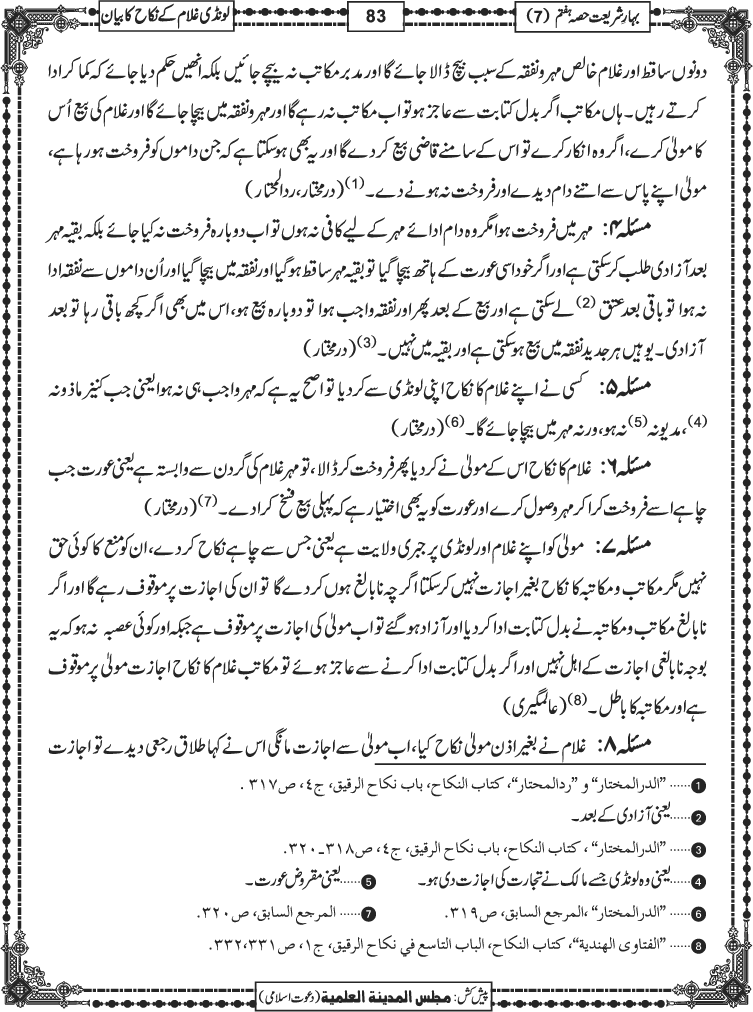 بہارِ شریعت حصہ ہفتم (7)
83
لونڈی غلام کے نکاح کا بیان
دونوں ساقط اور غلام خالص مہر و نفقہ کے سبب بیچ ڈالا جائے گا اور مدبر مکاتب نہ بیچے جائیں بلکہ انھیں حکم دیا جائے کہ کما کر ادا
کرتے رہیں۔ ہاں مکاتب اگر بدل کتابت سے عاجز ہو تو اب مکاتب نہ رہے گا اور مہر و نفقہ میں بیچا جائے گا اور غلام کی بیع اُس
کا مولیٰ کرے، اگر وہ انکار کرے تو اس کے سامنے قاضی بیع کر دے گا اور یہ بھی ہوسکتا ہے کہ جن داموں کو فروخت ہو رہا ہے،
مولیٰ اپنے پاس سے اتنے دام دیدے اور فروخت نہ ہونے دے۔(1) (درمختار، ردالمحتار)
مسئلہ ۴: مہر میں فروخت ہوا مگر وہ دام ادائے مہر کے لیے کافی نہ ہوں تو اب دوبارہ فروخت نہ کیا جائے بلکہ بقیہ مہر
بعد آزادی طلب کرسکتی ہے اور اگر خود اسی عورت کے ہاتھ بیچا گیا تو بقیہ مہر ساقط ہوگیا اور نفقہ میں بیچا گیا اور اُن داموں سے نفقہ ادا
نہ ہوا تو باقی بعد عتق (2) لے سکتی ہے اور بیع کے بعد پھر اور نفقہ واجب ہوا تو دوبارہ بیع ہو، اس میں بھی اگر کچھ باقی رہا تو بعد
آزادی۔ یوہیں ہر جدید نفقہ میں بیع ہوسکتی ہے اور بقیہ میں نہیں۔(3) (درمختار)
مسئلہ ۵: کسی نے اپنے غلام کا نکاح اپنی لونڈی سے کر دیا تو اصح یہ ہے کہ مہر واجب ہی نہ ہوا یعنی جب کنیز ماذونہ
(4)، مدیونہ (5) نہ ہو، ورنہ مہر میں بیچا جائے گا۔(6) (درمختار)
مسئلہ ۶: غلام کا نکاح اس کے مولیٰ نے کر دیا پھر فروخت کر ڈالا، تو مہر غلام کی گردن سے وابستہ ہے یعنی عورت جب
چاہے اسے فروخت کرا کر مہر وصول کرے اور عورت کو یہ بھی اختیار ہے کہ پہلی بیع فسخ کرا دے۔(7) (درمختار)
مسئلہ ۷: مولیٰ کو اپنے غلام اور لونڈی پر جبری ولایت ہے یعنی جس سے چاہے نکاح کر دے، ان کو منع کا کوئی حق
نہیں مگر مکاتب و مکاتبہ کا نکاح بغیر اجازت نہیں کرسکتا اگرچہ نابالغ ہوں کر دے گا تو ان کی اجازت پر موقوف رہے گا اور اگر
نابالغ مکاتب و مکاتبہ نے بدل کتابت ادا کر دیا اور آزاد ہوگئے تو اب مولیٰ کی اجازت پر موقوف ہے جبکہ اور کوئی عصبہ نہ ہو کہ یہ
بوجہ نابالغی اجازت کے اہل نہیں اور اگر بدل کتابت ادا کرنے سے عاجز ہوئے تو مکاتب غلام کا نکاح اجازت مولیٰ پر موقوف
ہے اور مکاتبہ کا باطل۔(8) (عالمگیری)
مسئلہ ۸: غلام نے بغیر اذن مولیٰ نکاح کیا، اب مولیٰ سے اجازت مانگی اس نے کہا طلاق رجعی دیدے تو اجازت
1 ...... "الدرالمختار" و "ردالمحتار"، کتاب النکاح، باب نکاح الرقیق، ج٤، ص٣١٧.
2 ...... یعنی آزادی کے بعد۔
3 ...... "الدرالمختار"، کتاب النکاح، باب نکاح الرقیق، ج٤، ص٣١٨۔٣٢٠.
4 ...... یعنی وہ لونڈی جسے مالک نے تجارت کی اجازت دی ہو۔ 5 ...... یعنی مقروض عورت۔
6 ...... "الدرالمختار"، المرجع السابق، ص٣١٩. 7 ...... المرجع السابق، ص٣٢٠.
8 ...... "الفتاوی الهندیة"، کتاب النکاح، الباب التاسع في نکاح الرقیق، ج١، ص٣٣١،٣٣٢.
پیش کش: مجلس المدینة العلمیة (دعوت اسلامی)